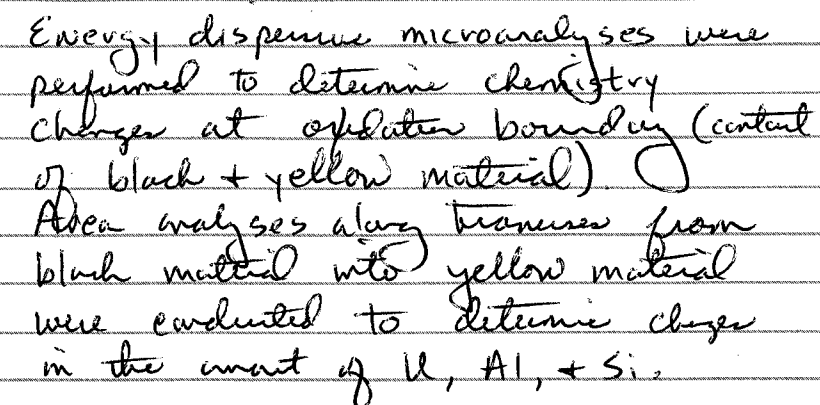 Energy dispersive microanalyses were
performed to determine chemistry
changes at oxidation boundary (contact
of black + yellow material).
Area analyses along traverses from
black material into yellow material
were conducted to determine changes
in the amount of U, Al, + Si.